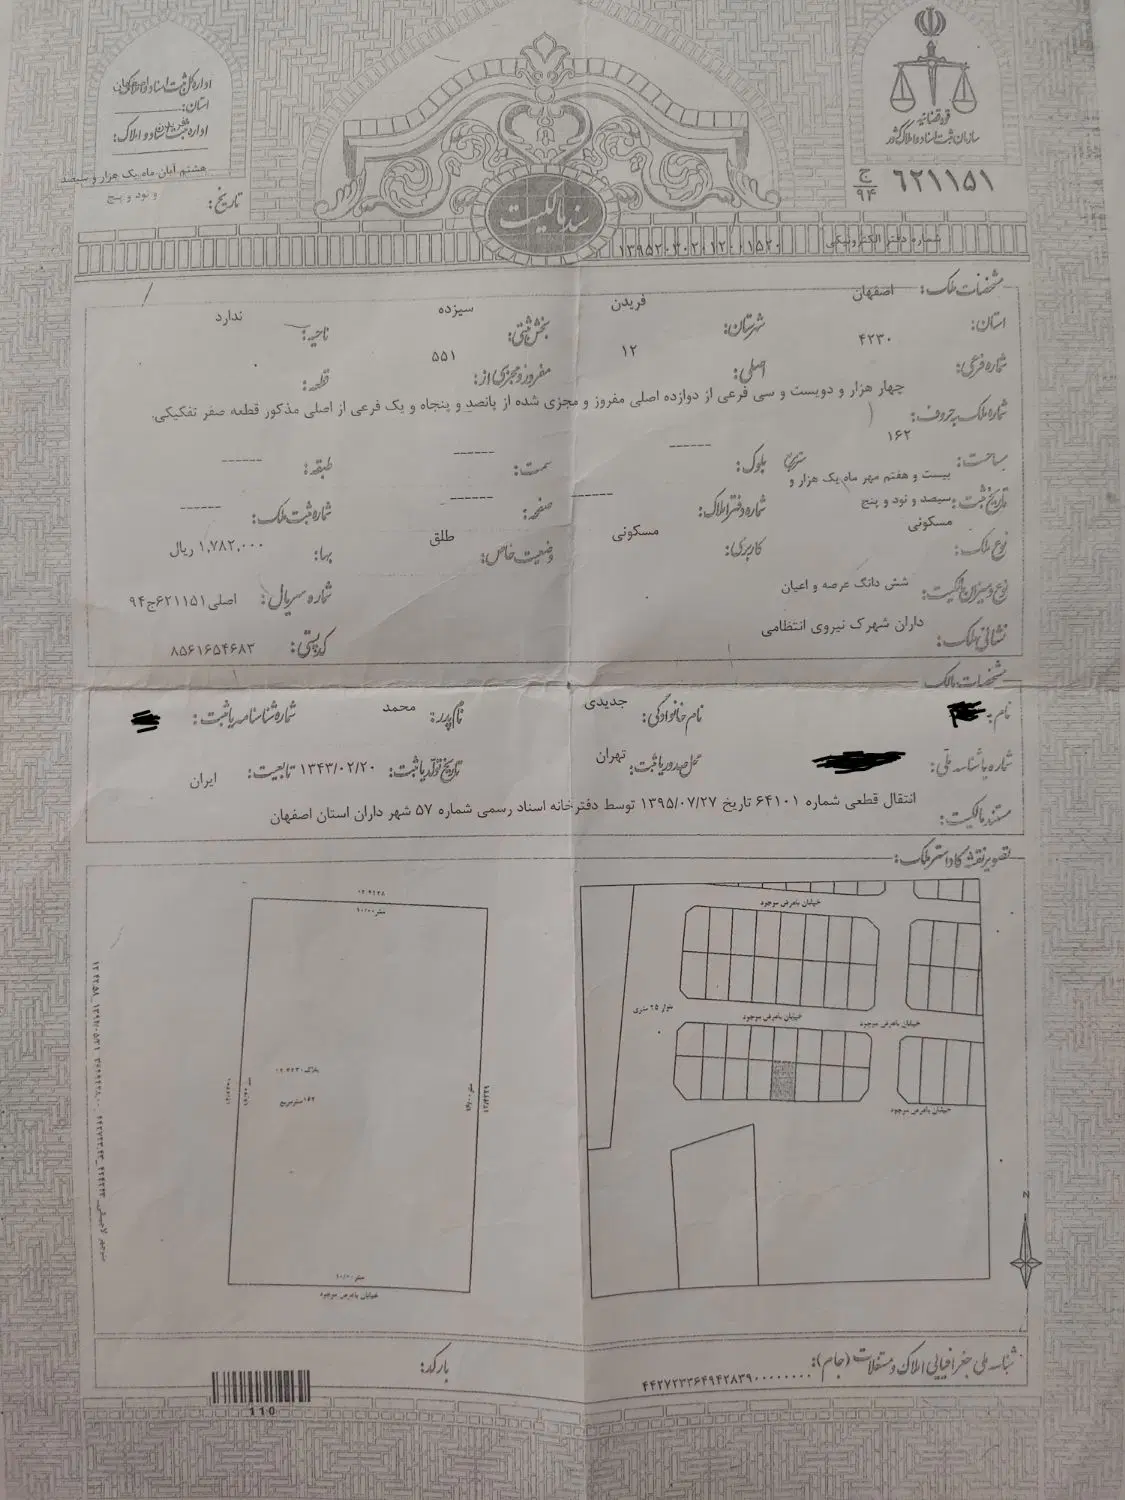 قوه قضائیه
سازمان ثبت اسناد و املاک کشور
۶۲۱۱۵۱ ج ۹۴
سند مالکیت
اداره کل ثبت اسناد و املاک
استان:
اداره ثبت اسناد و املاک: فریدن
تاریخ: هشتم آبان ماه یک هزار و سیصد
و نود و پنج
شماره دفتر الکترونیکی ۱۳۹۵۲۰۳۰۲۰۱۲۰۰۱۵۲۰
مشخصات ملک:
استان: اصفهان شهرستان: فریدن بخش ثبتی: سیزده ناحیه: ندارد
شماره فرعی: ۴۲۳۰ اصلی: ۱۲ مفروز و مجزی از: ۵۵۱ قطعه: ۰
شماره ملک به حروف: چهار هزار و دویست و سی فرعی از دوازده اصلی مفروز و مجزی شده از پانصد و پنجاه و یک فرعی از اصلی مذکور قطعه صفر تفکیکی.
مساحت: ۱۶۲ مترمربع بلوک: ------ سمت: ------ طبقه: ------
تاریخ ثبت: بیست و هفتم مهر ماه یک هزار و
سیصد و نود و پنج شماره دفتر املاک: ------ صفحه: ------ شماره ثبت ملک: ------
نوع ملک: مسکونی کاربری: مسکونی وضعیت خاص: طلق بها: ۱,۷۸۲,۰۰۰ ریال
نوع و میزان مالکیت: شش دانگ عرصه و اعیان شماره سریال: اصلی ۶۲۱۱۵۱ج۹۴
نشانی ملک: داران شهرک نیروی انتظامی کد پستی: ۸۵۶۱۶۵۴۶۸۳
مشخصات مالک
نام: نام خانوادگی: جدیدی نام پدر: محمد شماره شناسنامه یا ثبت:
شماره یا شناسه ملی: محل صدور یا ثبت: تهران تاریخ تولد یا ثبت: ۱۳۴۳/۰۲/۲۰ تابعیت: ایران
مستند مالکیت: انتقال قطعی شماره ۶۴۱۰۱ تاریخ ۱۳۹۵/۰۷/۲۷ توسط دفترخانه اسناد رسمی شماره ۵۷ شهر داران استان اصفهان
تصویر نقشه کاداستر ملک:
خیابان باعرض موجود
بلوار ۲۵ متری
خیابان باعرض موجود
خیابان باعرض موجود
خیابان باعرض موجود
N
متر ۱۰/۰۰
پلاک ۱۲.۴۲۳۰
۱۶۲ مترمربع
متر ۱۰/۰۰
خیابان باعرض موجود
شناسه ملی جغرافیایی املاک و مستغلات (جام): ۴۴۲۷۲۳۳۶۴۹۴۲۸۳۹۰۰۰۰۰۰۰۰۰
بارکد:
110